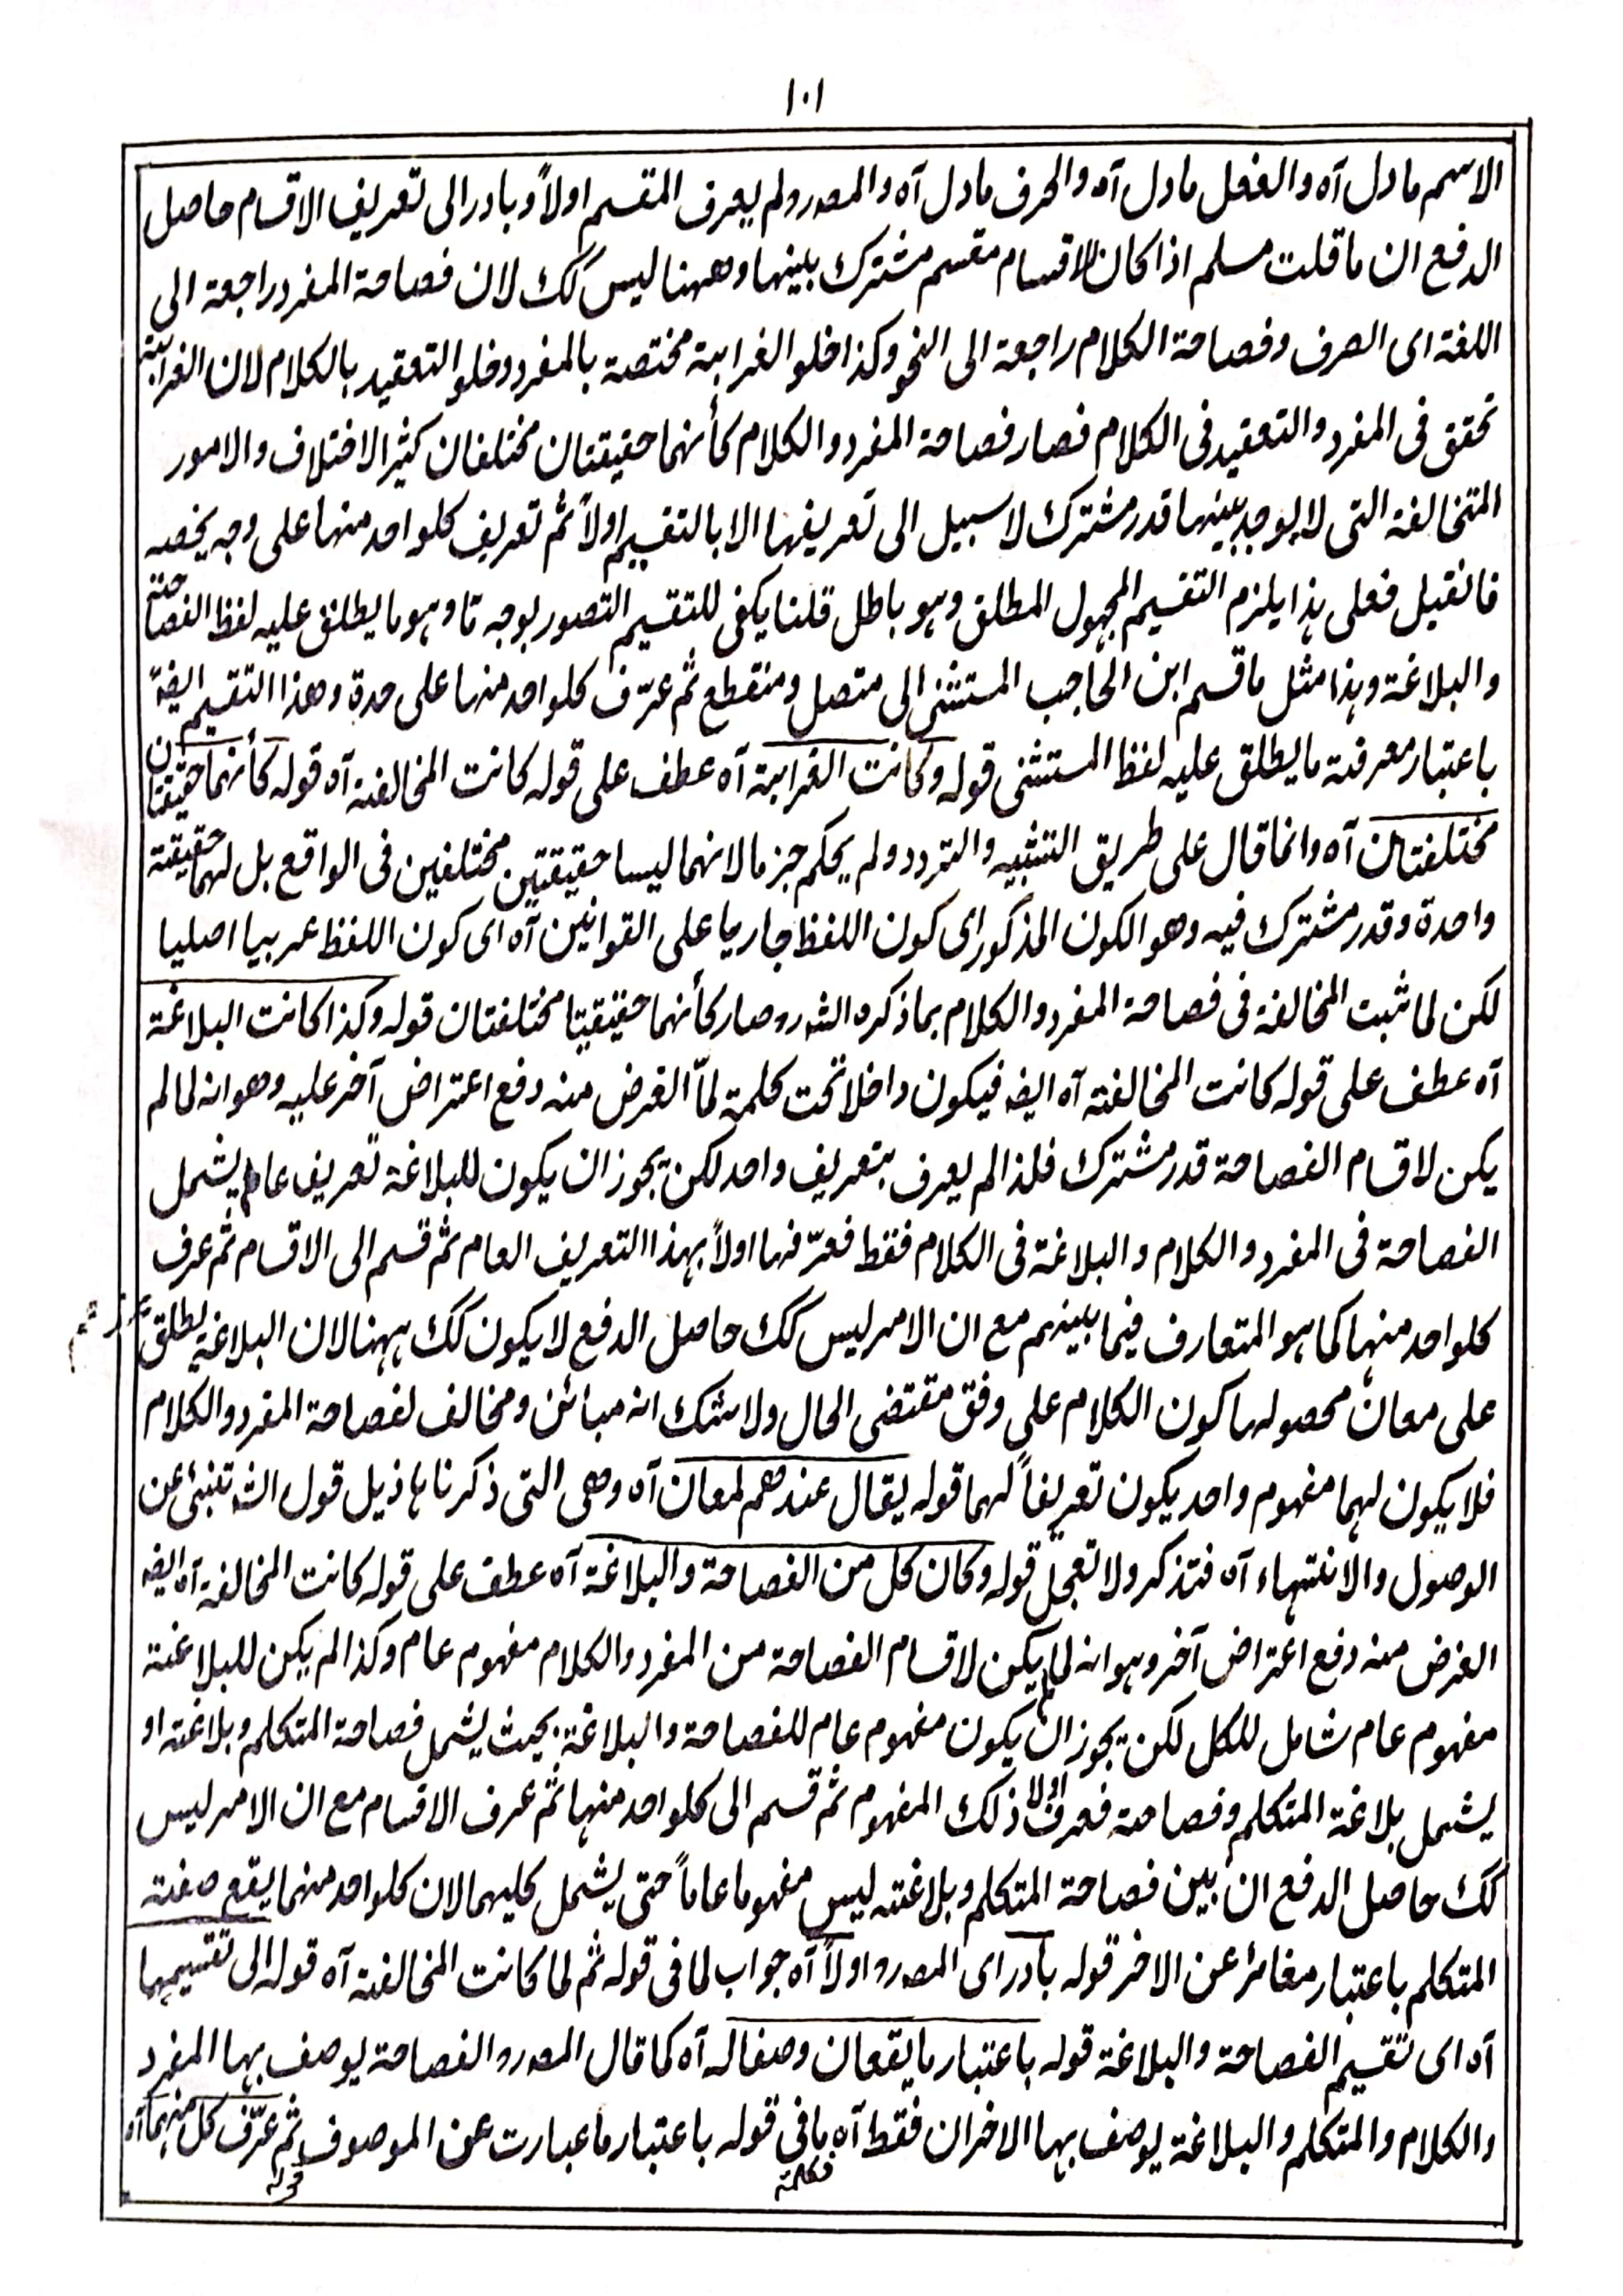 ١٠١
الاسم ما دل آه والفعل ما دل آه والحرف ما دل آه والمصرو لم يعرف المقسم اولاً وبادر الى تعريف الاقسام حاصل
الدفع ان ما قلت مسلم اذا كان للاقسام مقسم مشترك بينها وههنا ليس كك لان فصاحة المفرد راجعة الى
اللغة اى الصرف وفصاحة الكلام راجعة الى النحو وكذا خلو الغرابة مختصة بالمفرد وخلو التعقيد بالكلام لان الغرابة
تحقق فى المفرد والتعقيد فى الكلام فصار فصاحة المفرد والكلام كأنهما حقيقتان مختلفان كثير الاختلاف والامور
المتخالفة التى لا يوجد بينها قدر مشترك لا سبيل الى تعريفها الا بالتقسيم اولاً ثم تعريف كلواحد منها على وجه يخصه
فانقيل فعلى هذا يلزم التقسيم المجهول المطلق وهو باطل قلنا يكفى للتقسيم التصور بوجه ما وهو ما يطلق عليه لفظ الفصاحة
والبلاغة وهذا مثل ما قسم ابن الحاجب المستثنى الى متصل ومنقطع ثم عرّف كلواحد منها على حدة وهذا التقسيم ايضاً
باعتبار معرفة ما يطلق عليه لفظ المستثنى قوله وكانت الغرابة آه عطف على قوله كانت المخالفة آه قوله كأنهما حقيقتان
مختلفتان آه وانما قال على طريق التشبيه والتردد ولم يحكم جزما لانهما ليسا حقيقتين مختلفين فى الواقع بل لهما حقيقة
واحدة وقدر مشترك فيه وهو الكون المذكور اى كون اللفظ جاريا على القوانين آه اى كون اللفظ عربيا اصليا
لكن لما ثبت المخالفة فى فصاحة المفرد والكلام بما ذكره الشرو صار كأنهما حقيقيتا مختلفتان قوله وكذا كانت البلاغة
آه عطف على قوله كانت المخالفة آه ايضا فيكون داخلا تحت كلمة لمّا الغرض منه دفع اعتراض آخر عليه وهو انه لما لم
يكن لاقسام الفصاحة قدر مشترك فلذا لم يعرف بتعريف واحد لكن يجوز ان يكون للبلاغة تعريف عام يشمل
الفصاحة فى المفرد والكلام والبلاغة فى الكلام فقط فعرّفها اولاً بهذا التعريف العام ثم قسم الى الاقسام ثم عرف
كلواحد منها كما هو المتعارف فيما بينهم مع ان الامر ليس كك حاصل الدفع لا يكون كك ههنا لان البلاغة يطلق
على معان محصولها كون الكلام على وفق مقتضى الحال ولا شك انه مبائن ومخالف لفصاحة المفرد والكلام
فلا يكون لهما مفهوم واحد يكون تعريفاً لهما قوله يقال عندهم لمعان آه وهى التى ذكرناها ذيل قول الشه تنبئ عن
الوصول والانتهاء آه فتذكر ولا تعجل قوله وكان كل من الفصاحة والبلاغة آه عطف على قوله كانت المخالفة آه ايضا
الغرض منه دفع اعتراض آخر وهو انه لما لم يكن لاقسام الفصاحة من المفرد والكلام مفهوم عام وكذا لم يكن للبلاغة
مفهوم عام شامل للكل لكن يجوز ان يكون مفهوم عام للفصاحة والبلاغة بحيث يشمل فصاحة المتكلم وبلاغته او
يشمل بلاغة المتكلم وفصاحة فعرف اولا ذلك المفهوم ثم قسم الى كلواحد منها ثم عرف الاقسام مع ان الامر ليس
كك حاصل الدفع ان بين فصاحة المتكلم وبلاغته ليس مفهوما عاماً حتى يشمل كليهما لان كلواحد منهما يقع صفة
المتكلم باعتبار مغائر عن الاخر قوله بادر اى المصرو اولاً آه جواب لما فى قوله ثم لما كانت المخالفة آه قوله الى تقسيمها
آه اى تقسيم الفصاحة والبلاغة قوله باعتبار ما يقعان وصفا له آه كما قال المصرو الفصاحة يوصف بها المفرد
والكلام والمتكلم والبلاغة يوصف بها الاخران فقط آه ما فى قوله باعتبار ما عبارت عن الموصوف ثم عرّف كل منهما آه
فكلمة قوله